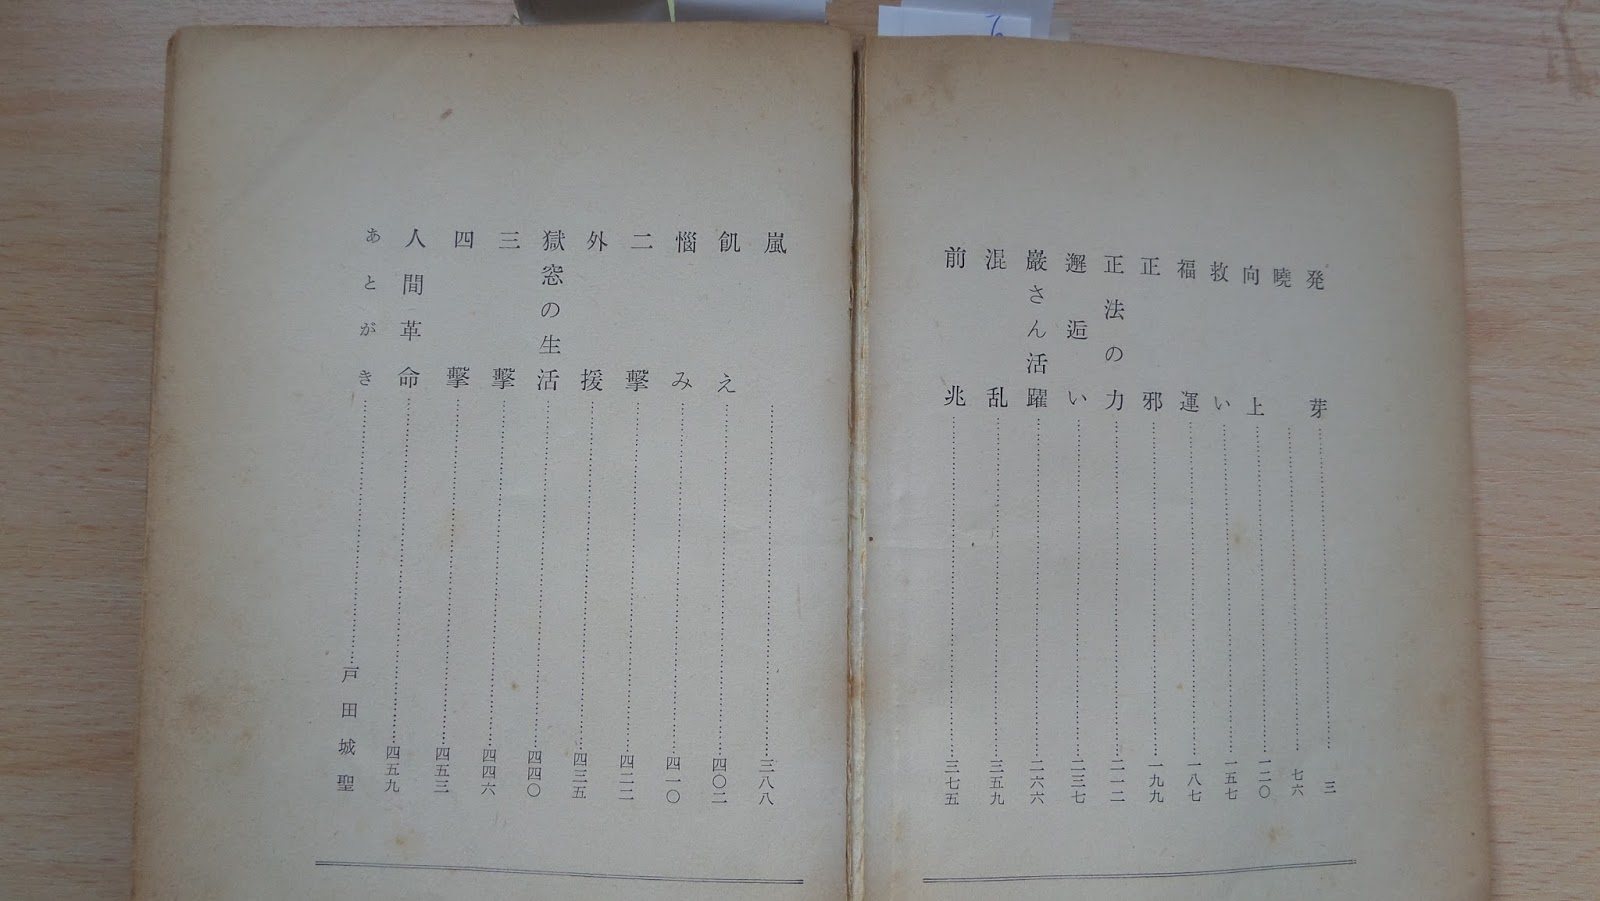 発芽……三
曉……七六
向上……一二〇
救い……一五七
福運……一八七
正邪……一九九
正法の力……二一二
邂逅い……二三七
巌さん活躍……二六六
混乱……三五九
前兆……三七五
嵐……三八八
飢え……四〇二
悩み……四一〇
二撃……四二二
外援……四三五
獄窓の生活……四四〇
三撃……四四六
四撃……四五三
人間革命……四五九
あとがき……戸田城聖